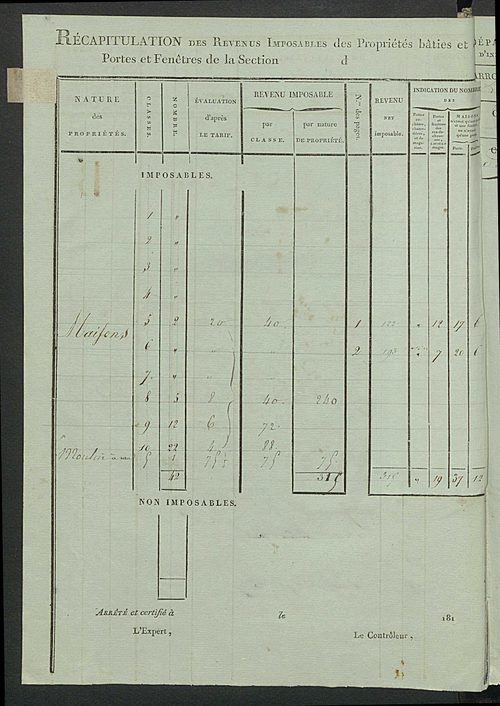 RÉCAPITULATION DES REVENUS IMPOSABLES des Propriétés bâties et
Portes et Fenêtres de la Section d
NATURE des PROPRIÉTÉS.
CLASSES.
NOMBRE.
ÉVALUATION d'après LE TARIF.
REVENU IMPOSABLE
par CLASSE.
par nature DE PROPRIÉTÉ.
N.os des pages.
REVENU NET imposable.
INDICATION DU NOMBRE
DES
MAISONS
IMPOSABLES.
1 "
2 "
3 "
4 "
Maisons 5 2 20 40 1 122 " 12 17 6
6 " " " 2 193 7 20 6
7 " "
8 5 8 40 240
9 12 6 72
10 22 4 88
Moulin à 5 1 75 75 75
42 315 315 " 19 37 12
NON IMPOSABLES.
ARRÊTÉ et certifié à le 181
L'Expert, Le Contrôleur,